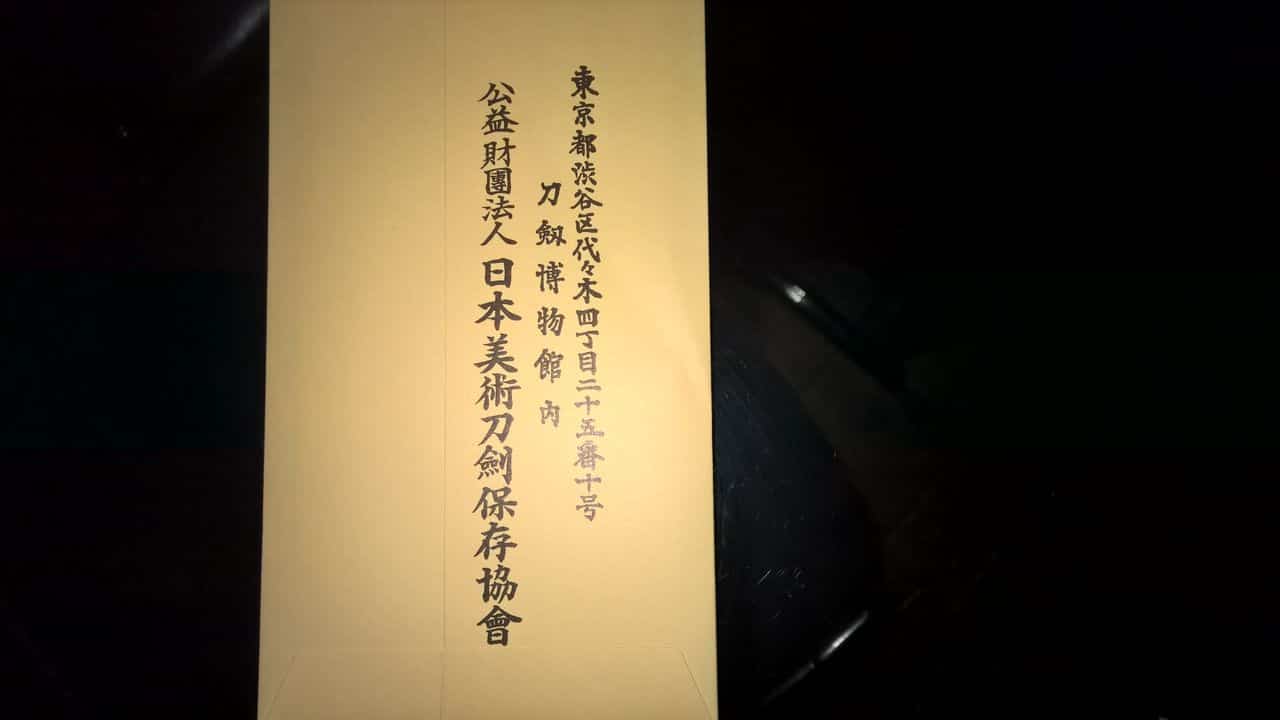 東京都渋谷区代々木四丁目二十五番十号
刀剱博物館内
公益財團法人日本美術刀劍保存協會